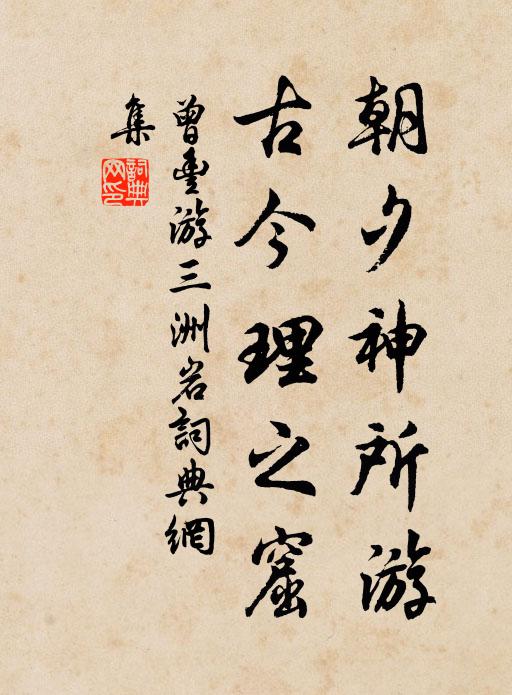 朝夕神所游
古今理之窟
曾豐游三洲岩詞典網
集
詞典
网印